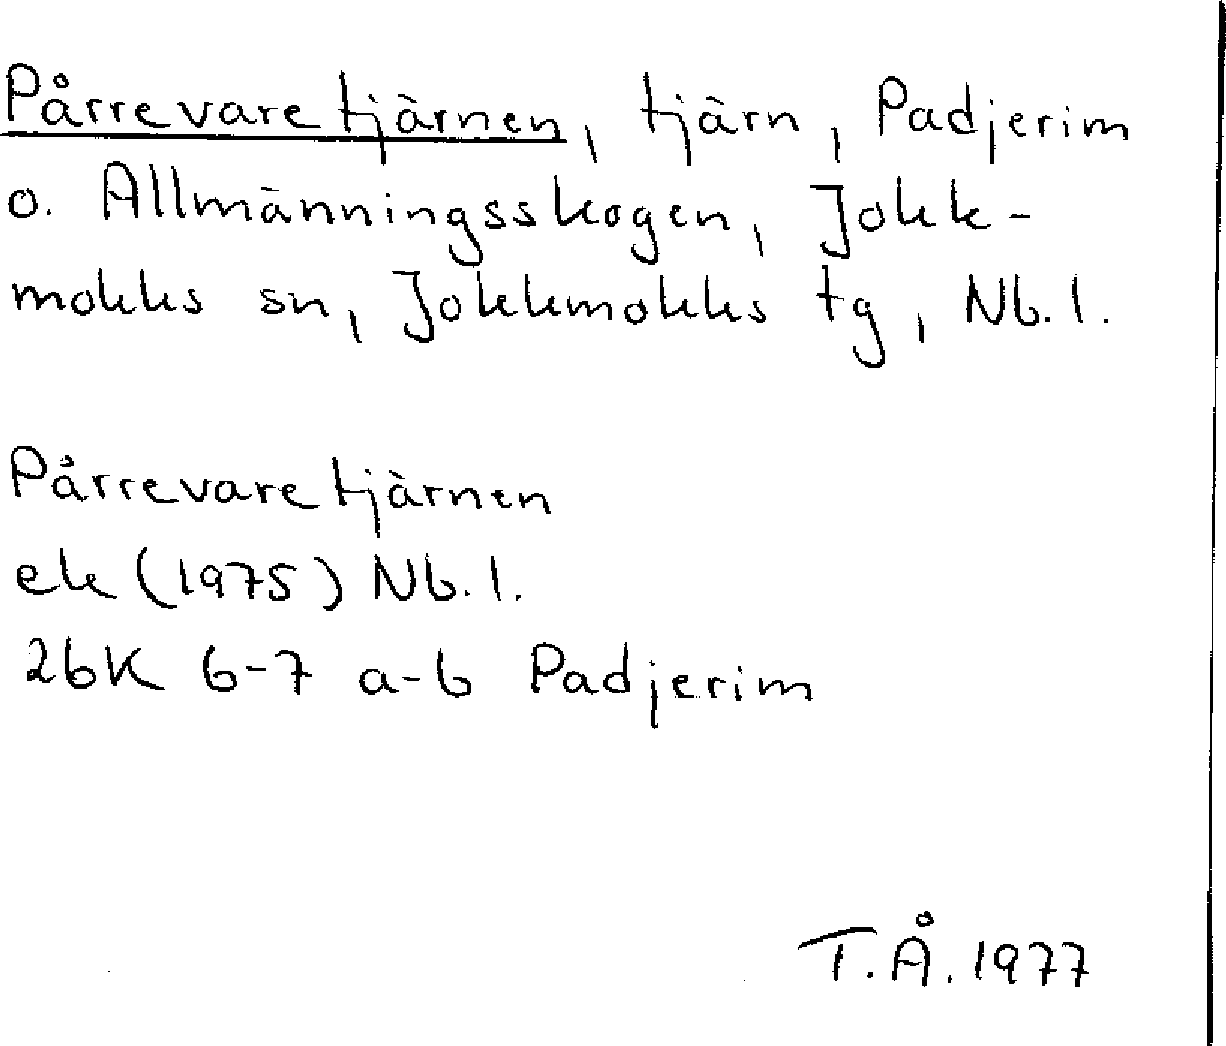 Pårrevaretjärnen, tjärn, Padjerim
o. Allmänningsskogen, Jokk-
mokks sn, Jokkmokks tg, Nb.l.
Pårrevaretjärnen
ek (1975) Nb.l.
26K 6-7 a-b Padjerim
T.Å. 1977